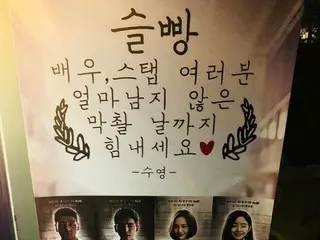 슬빵
배우,스탭 여러분
얼마남지 않은
막촬 날까지
힘내세요♥
-수영-